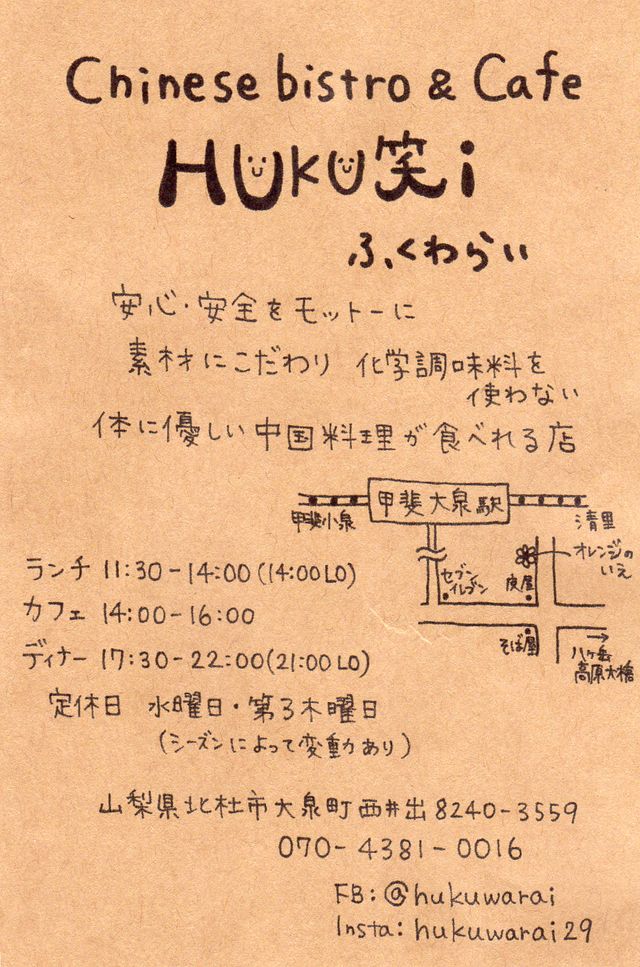 Chinese bistro & Cafe
HUKU笑i
ふくわらい
安心・安全をモットーに
素材にこだわり 化学調味料を
使わない
体に優しい中国料理が食べれる店
甲斐大泉駅
甲斐小泉
清里
オレンジの
いえ
セブン
イレブン
そば屋
八ヶ岳
高原大橋
ランチ 11:30-14:00(14:00LO)
カフェ 14:00-16:00
ディナー 17:30-22:00(21:00LO)
定休日 水曜日・第3木曜日
(シーズンによって変動あり)
山梨県北杜市大泉町西井出8240-3559
070-4381-0016
FB:@hukuwarai
Insta:hukuwarai29